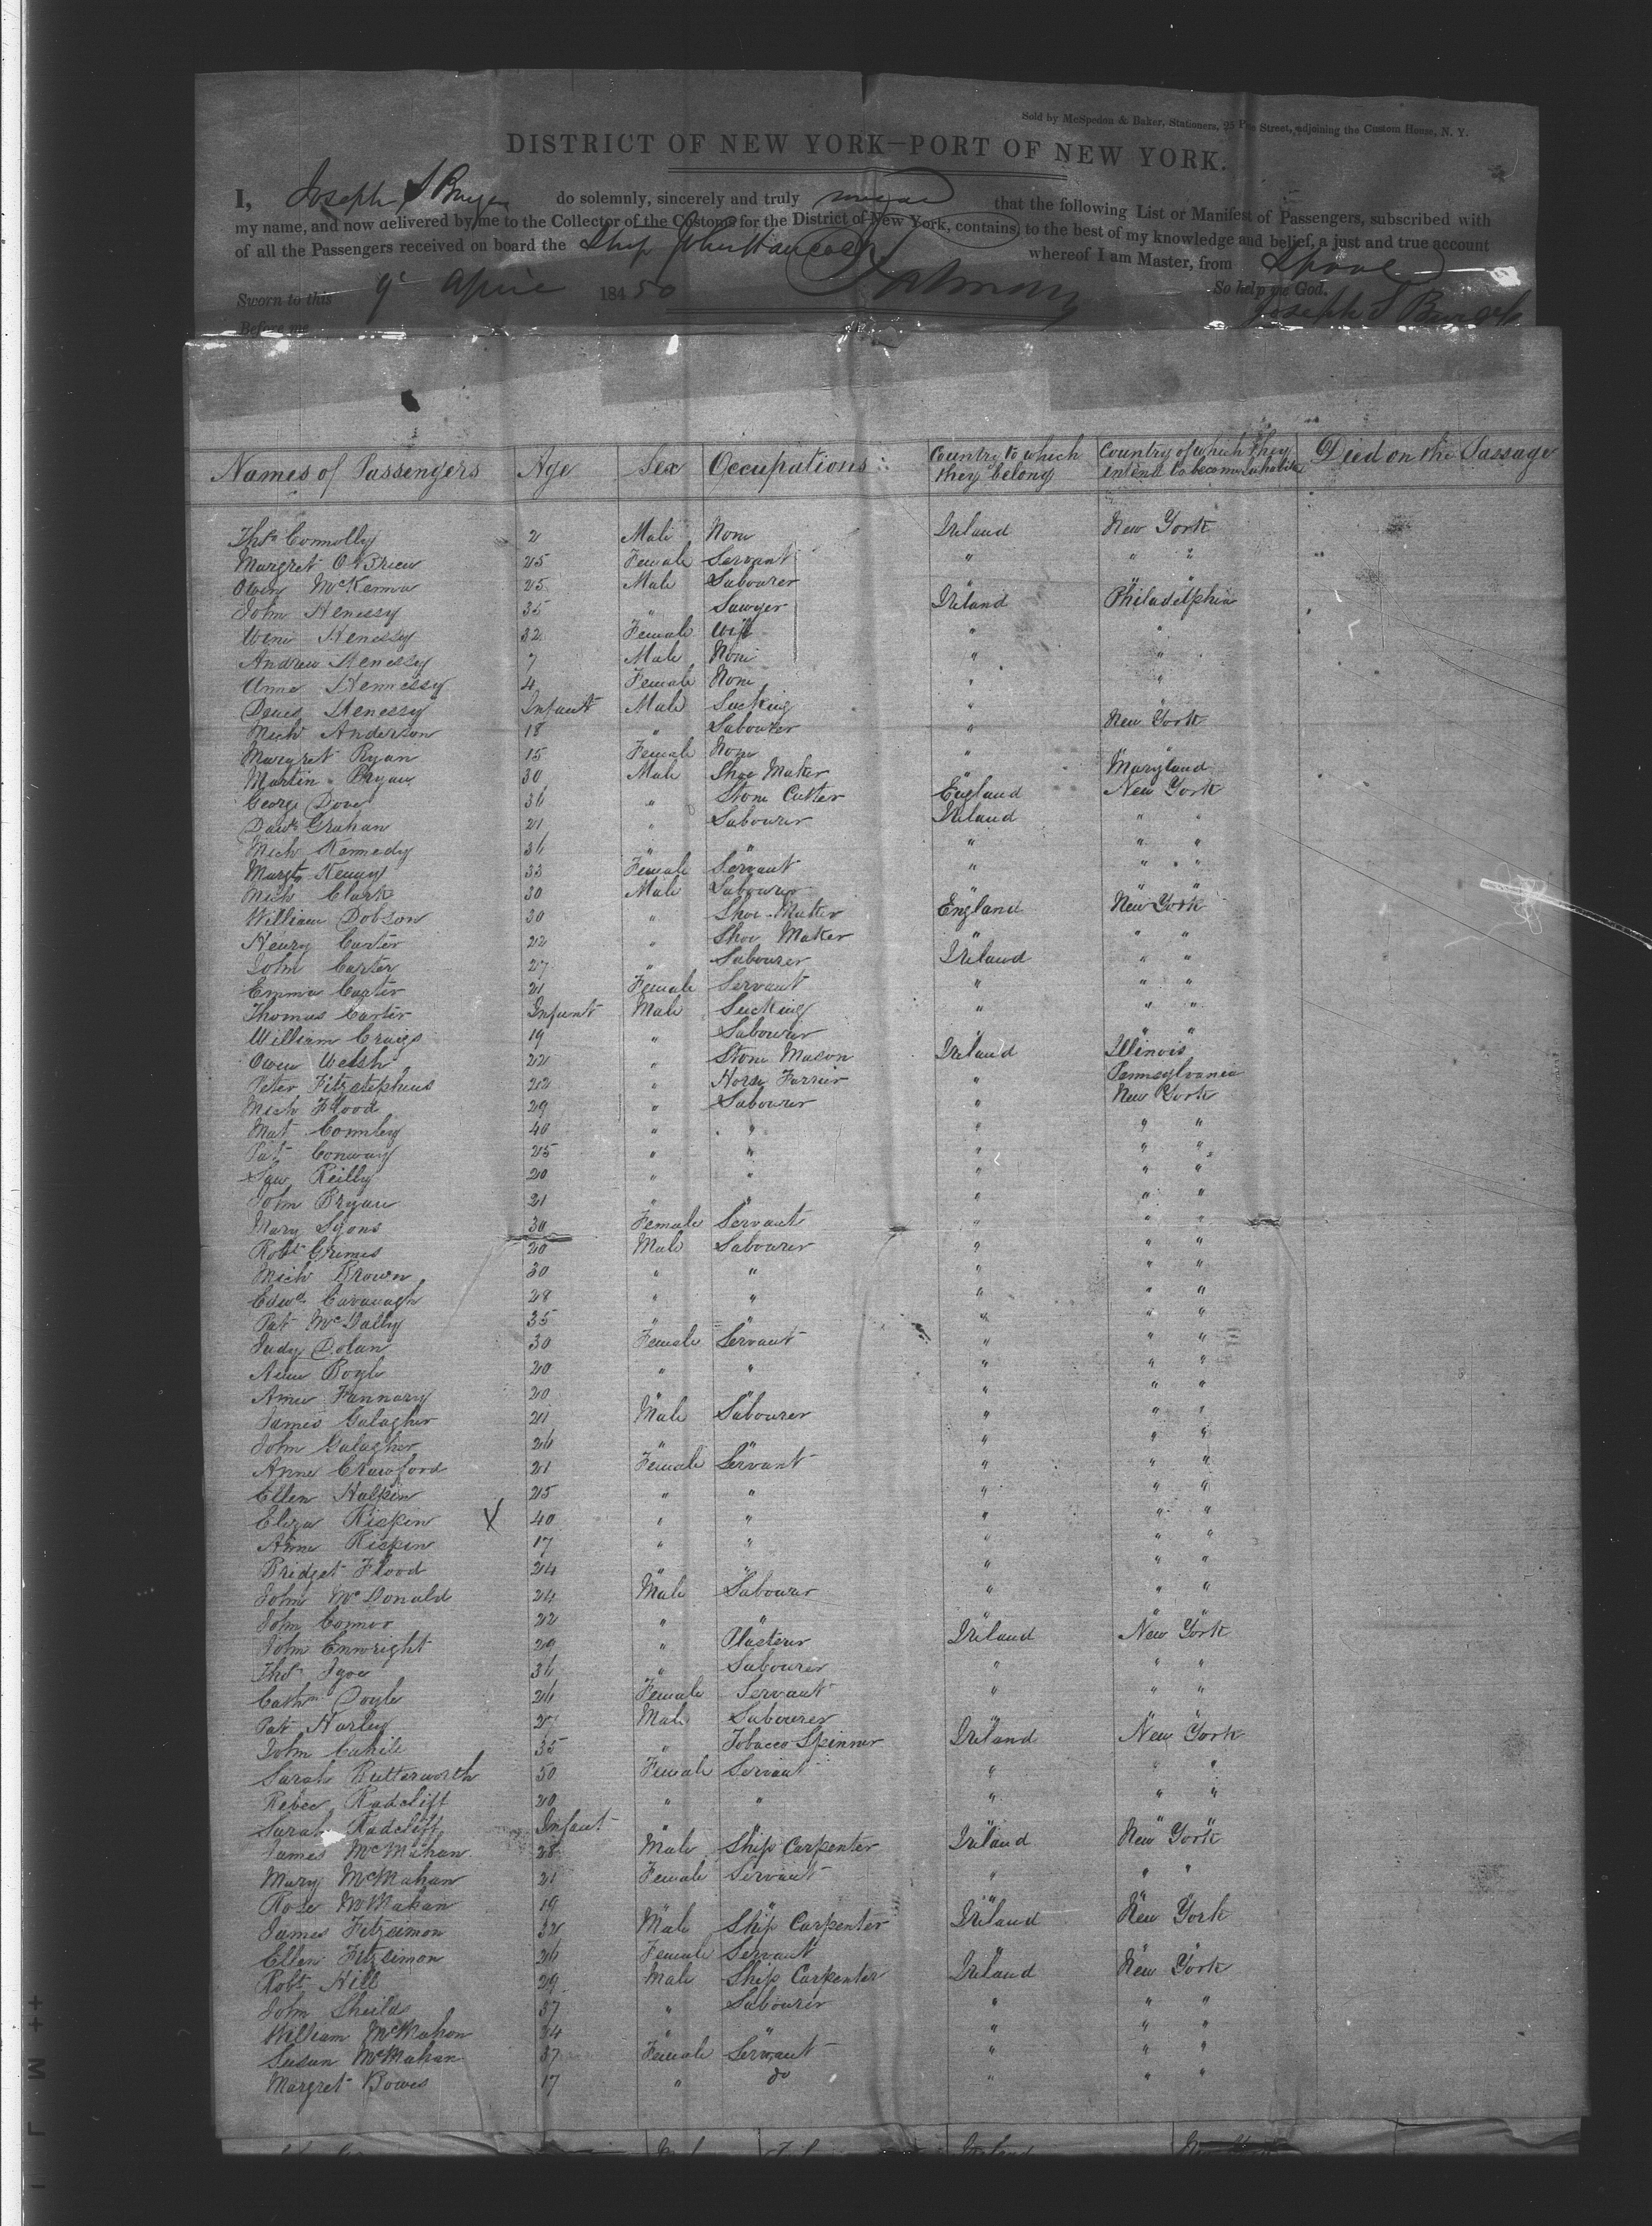 Sold by McSpedon & Baker, Stationers, 25 Pine Street, adjoining the Custom House, N. Y.
DISTRICT OF NEW YORK—PORT OF NEW YORK.
I, Joseph S Burgess do solemnly, sincerely and truly swear that the following List or Manifest of Passengers, subscribed with
my name, and now delivered by me to the Collector of the Customs for the District of New York, contains, to the best of my knowledge and belief, a just and true account
of all the Passengers received on board the Ship John Hancock whereof I am Master, from Lpool
Sworn to this 9 April 184 50 So help me God.
Before me Joseph S Burgess
Names of Passengers Age Sex Occupations Country to which they belong Country of which they intend to become inhabitants Died on the Passage
Thos Connolly 2 Male None Ireland New York
Margret O Brien 25 Female Servant " " "
Owen McKenna 25 Male Labourer
John Henessy 35 " Sawyer Ireland Philadelphia
Henessy 32 Female Wife " "
Andrew Henessy 7 Male None " "
Anne Hennessy 4 Female None " "
Henessy Infant Male Sucking "
Mich Anderson 18 " Labourer " New York
Margret Ryan 15 Female None " "
Martin Bryan 30 Male Shoe Maker " Maryland
George Dove 36 " Stone Cutter England New York
Grahan 21 " Labourer Ireland " "
Mich Kennedy 36 " " " " "
Margt Kenny 33 Female Servant " " "
Mich Clark 30 Male Labourer " " "
William Dobson 30 " Shoe Maker England New York
Henry Carter 22 " Shoe Maker " " "
John Carter 27 " Labourer Ireland " "
Emma Carter 21 Female Servant " " "
Thomas Carter Infant Male Sucking " " "
William Craigs 19 " Labourer " " "
Owen Welsh 22 " Stone Mason Ireland Illinois
Peter Fitzstephens 22 " Horse Farrier " Pennsylvania
Mich Flood 29 " Labourer " New York
Mat Comley 40 " " " " "
Pat Conway 25 " " " " "
Reilly 20 " " " " "
John Bryan 21 " " " " "
Mary Lyons 30 Female Servant " " "
Robt Grimes 20 Male Labourer " " "
Mich Brown 30 " " " " "
Edwd Cavanagh 28 " " " " "
Pat McNally 35 " " " " "
Judy Dolan 30 Female Servant " " "
Anne Boyle 20 " " " " "
Anne Fannary 20 " " " " "
James Galagher 21 Male Labourer " " "
John Galagher 26 " " " " "
Anne Crawford 21 Female Servant " " "
Ellen Halpin 25 " " " " "
Eliza Kispin X 40 " " " " "
Anne Kispin 17 " " " " "
Bridget Flood 24 " " " " "
John McDonald 24 Male Labourer " " "
John Connor 22 " " " " "
John Enwright 29 " Plasterer Ireland New York
Thos Igoe 36 " Labourer " " "
Cathn Doyle 26 Female Servant " " "
Pat Harley 27 Male Labourer " " "
John Cahill 35 " Tobacco Spinner Ireland New York
Sarah Butterworth 50 Female Servant " " "
Rebec Radclift 20 " " " " "
Sarah Radclift Infant " " " " "
James McMahan 28 Male Ship Carpenter Ireland New York
Mary McMahan 21 Female Servant " " "
Rose McMahan 19 " " " " "
James Fitzsimon 32 Male Ship Carpenter Ireland New York
Ellen Fitzsimon 26 Female Servant " " "
Robt Hill 29 Male Ship Carpenter Ireland New York
John Sheilds 37 " Labourer " " "
William McMahon 34 " " " " "
Susan McMahan 37 Female Servant " " "
Margret Bowes 17 " do " " "
Ireland New York